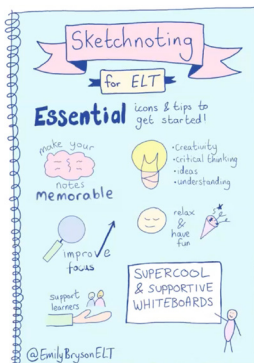 Sketchnoting
for ELT
Essential icons & tips to
get started!
make your
notes
memorable
• Creativity
• critical thinking
• ideas
• understanding
improve
focus
relax
&
have
fun
support
learners
SUPERCOOL
& SUPPORTIVE
WHITEBOARDS
@EmilyBrysonELT